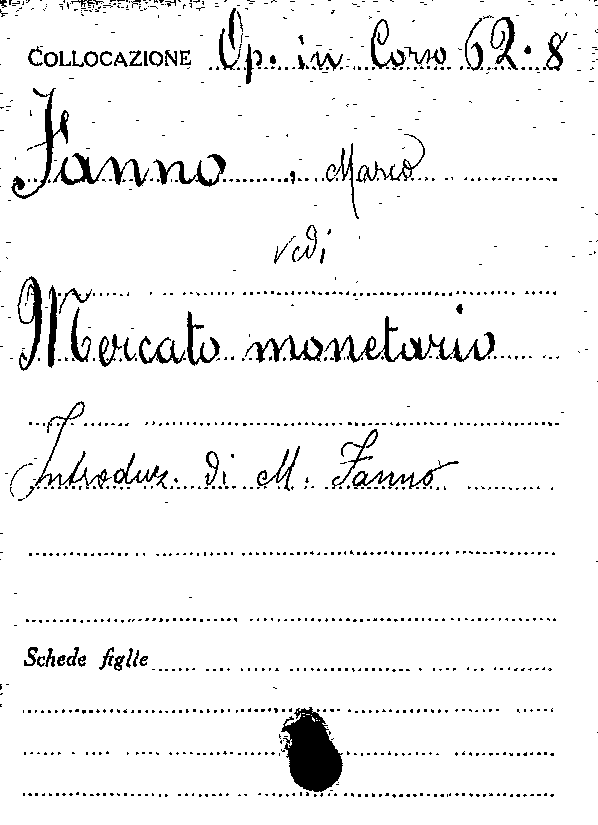 COLLOCAZIONE Op. in Corso 62.8
Fanno, Marco
vedi
Mercato monetario
Introduz. di M. Fanno
Schede figlie